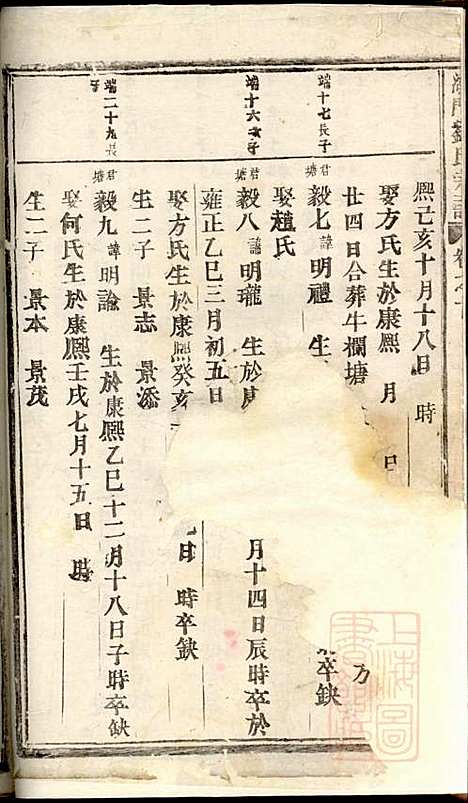 熙己亥十月十八日 時
娶方氏生於康熙 月 日
廿四日合葬牛欄塘
端十七長子
君塘 毅七諱明禮 生 卒缺
娶趙氏
端十六次子
君塘 毅八諱明瓏 生於 月十四日辰時卒於
雍正乙巳三月初五日
娶方氏生於康熙癸亥 日 時卒缺
生二子 景志 景添
端二十九長子
君塘 毅九諱明論 生於康熙乙巳十二月十八日子時卒缺
娶何氏生於康熙壬戌七月十五日 時
生二子 景本 景茂
上海圖書館藏